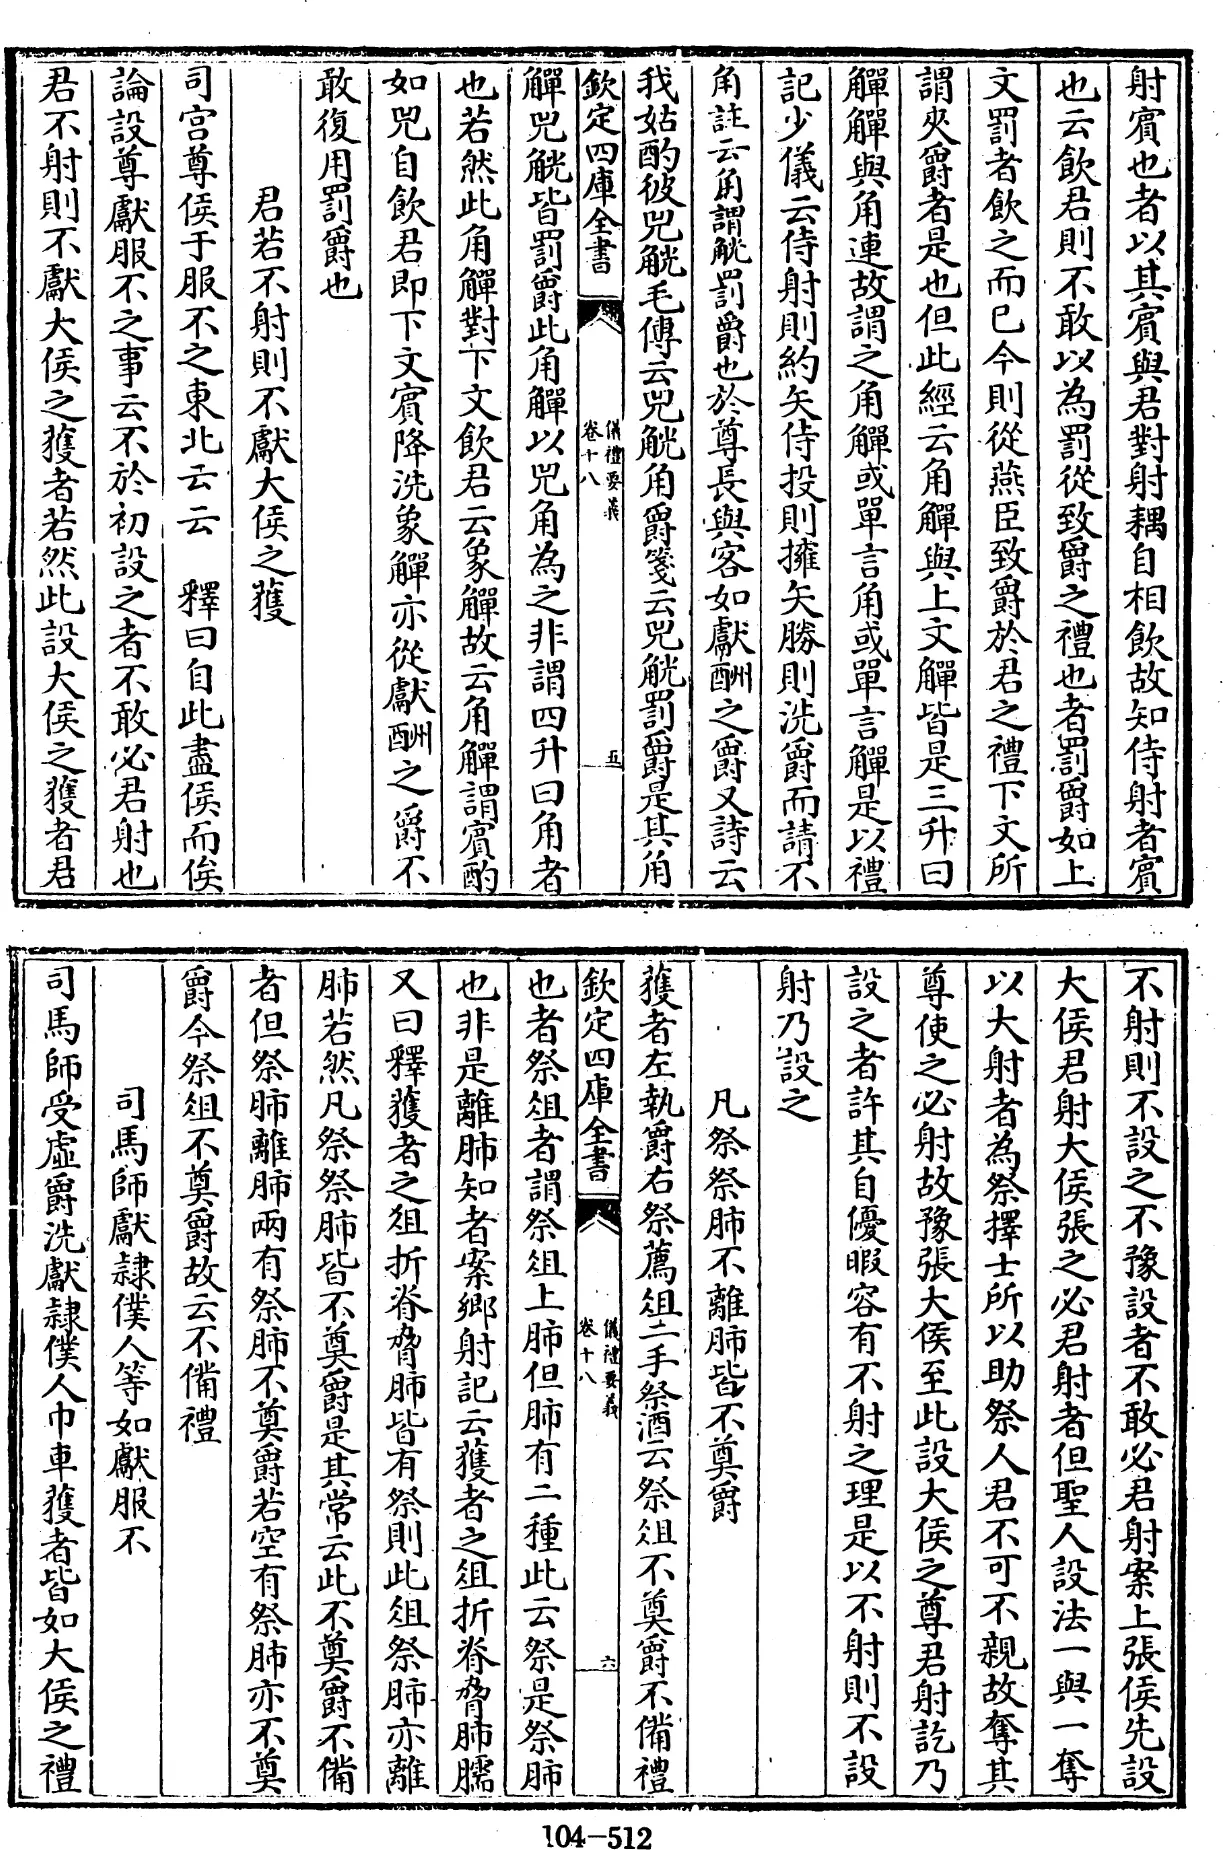 射賓也者以其賓與君對射耦自相飲故知侍射者賓
也云飲君則不敢以為罰從致爵之禮也者罰爵如上
文罰者飲之而已今則從燕臣致爵於君之禮下文所
謂夾爵者是也但此經云角觶與上文觶皆是三升曰
觶觶與角連故謂之角觶或單言角或單言觶是以禮
記少儀云侍射則約矢侍投則擁矢勝則洗爵而請不
角註云角謂觥罰爵也於尊長與客如獻酬之爵又詩云
我姑酌彼兕觥毛傳云兕觥角爵箋云兕觥罰爵是其角
欽定四庫全書
儀禮要義
卷十八
五
觶兕觥皆罰爵此角觶以兕角為之非謂四升曰角者
也若然此角觶對下文飲君云象觶故云角觶謂賓酌
如兕自飲君即下文賓降洗象觶亦從獻酬之爵不
敢復用罰爵也
君若不射則不獻大侯之獲
司宮尊侯于服不之東北云云　釋曰自此盡侯而俟
論設尊獻服不之事云不於初設之者不敢必君射也
君不射則不獻大侯之獲者若然此設大侯之獲者君
不射則不設之不豫設者不敢必君射案上張侯先設
大侯君射大侯張之必君射者但聖人設法一與一奪
以大射者為祭擇士所以助祭人君不可不親故奪其
尊使之必射故豫張大侯至此設大侯之尊君射訖乃
設之者許其自優暇容有不射之理是以不射則不設
射乃設之
凡祭祭肺不離肺皆不奠爵
獲者左執爵右祭薦俎二手祭酒云祭俎不奠爵不備禮
欽定四庫全書
儀禮要義
卷十八
六
也者祭俎者謂祭俎上肺但肺有二種此云祭是祭肺
也非是離肺知者案鄉射記云獲者之俎折脊脅肺臑
又曰釋獲者之俎折脊脅肺皆有祭則此俎祭肺亦離
肺若然凡祭祭肺皆不奠爵是其常云此不奠爵不備
者但祭肺離肺兩有祭肺不奠爵若空有祭肺亦不奠
爵今祭俎不奠爵故云不備禮
司馬師獻隸僕人等如獻服不
司馬師受虛爵洗獻隸僕人巾車獲者皆如大侯之禮
104-512